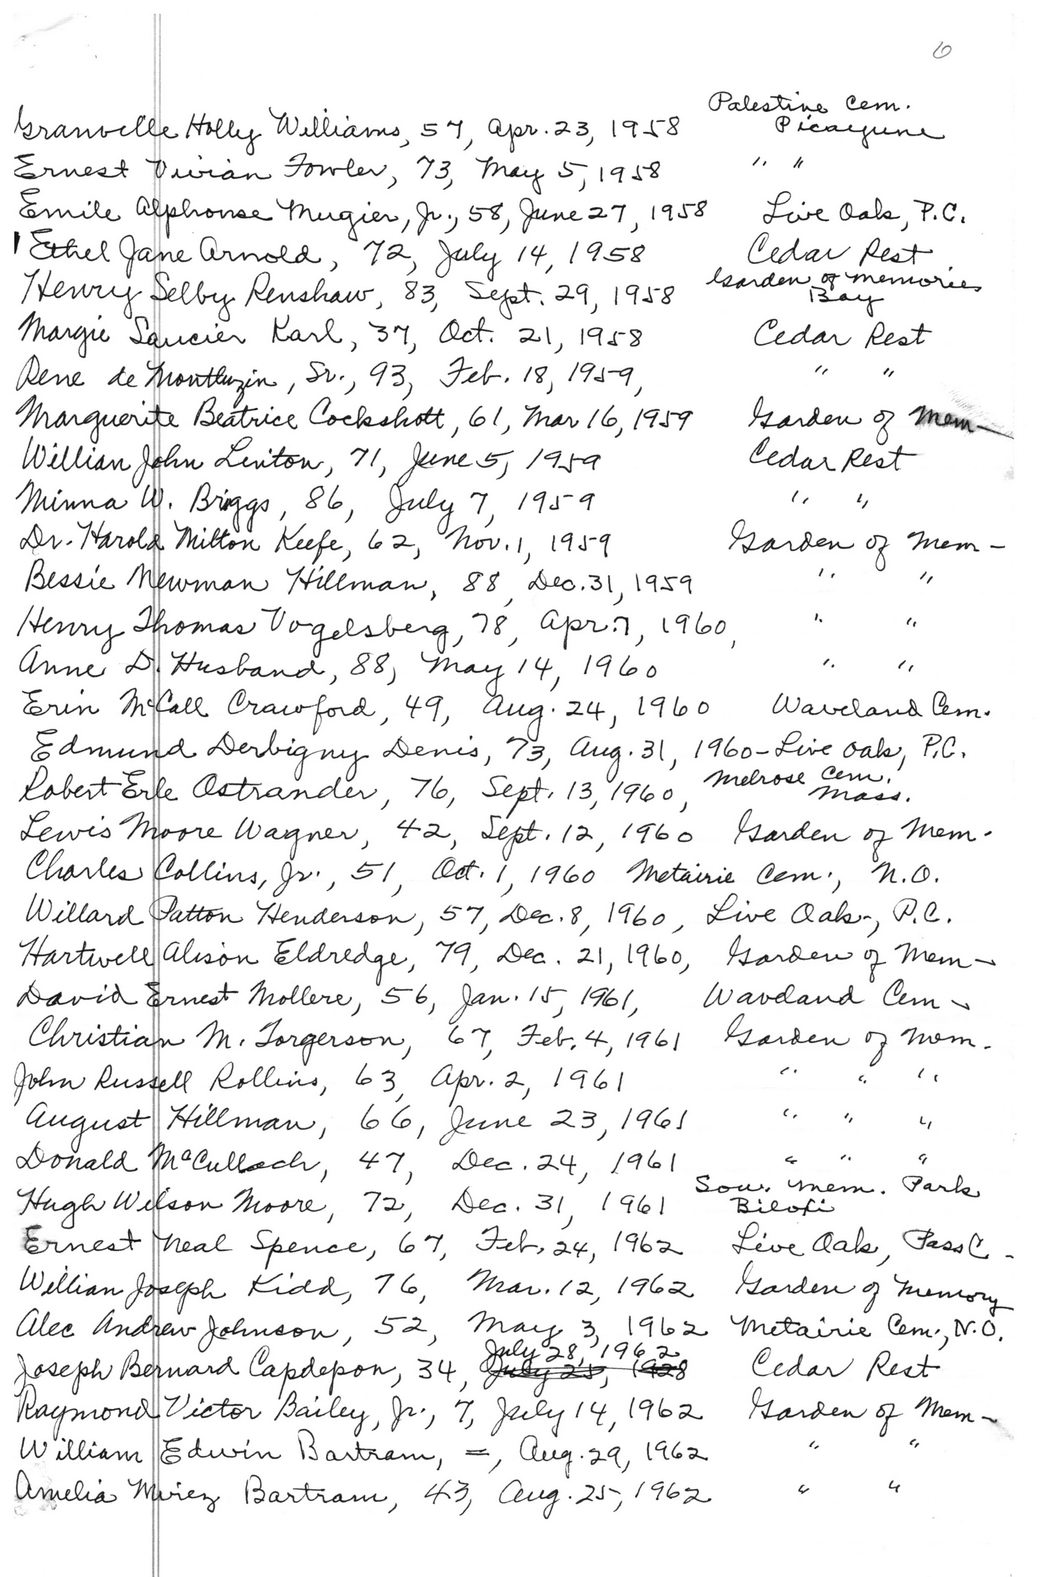 6
Palestine Cem.
Granville Holly Williams, 57, Apr. 23, 1958 Picayune
Ernest Vivian Fowler, 73, May 5, 1958 " "
Emile Alphonse Mugier, Jr., 58, June 27, 1958 Live Oak, P.C.
Ethel Jane Arnold, 72, July 14, 1958 Cedar Rest
Henry Selby Renshaw, 83, Sept. 29, 1958 Garden of Memories
Bay
Margie Saucier Karl, 37, Oct. 21, 1958 Cedar Rest
Rene de Montluzin, Sr., 93, Feb. 18, 1959, " "
Marguerite Beatrice Cockshott, 61, Mar 16, 1959 Garden of Mem-
Willian John Linton, 71, June 5, 1959 Cedar Rest
Minna W. Briggs, 86, July 7, 1959 " "
Dr. Harold Milton Keefe, 62, Nov. 1, 1959 Garden of Mem-
Bessie Newman Hillman, 88, Dec. 31, 1959 " "
Henry Thomas Vogelsberg, 78, Apr. 7, 1960, " "
Anne D. Husband, 88, May 14, 1960 " "
Erin McCall Crawford, 49, Aug. 24, 1960 Waveland Cem.
Edmund Derbigny Denis, 73, Aug. 31, 1960 - Live Oak, P.C.
Robert Erle Ostrander, 76, Sept. 13, 1960, Melrose Cem.
Mass.
Lewis Moore Wagner, 42, Sept. 12, 1960 Garden of Mem.
Charles Collins, Jr., 51, Oct. 1, 1960 Metairie Cem., N.O.
Willard Patton Henderson, 57, Dec. 8, 1960, Live Oak, P.C.
Hartwell Alison Eldredge, 79, Dec. 21, 1960, Garden of Mem-
David Ernest Mollere, 56, Jan. 15, 1961, Waveland Cem-
Christian M. Torgerson, 67, Feb. 4, 1961 Garden of Mem.
John Russell Rollins, 63, Apr. 2, 1961 " " "
August Hillman, 66, June 23, 1961 " " "
Donald McCulloch, 47, Dec. 24, 1961 " " "
Hugh Wilson Moore, 72, Dec. 31, 1961 Sou. Mem. Park
Biloxi
Ernest Neal Spence, 67, Feb. 24, 1962 Live Oak, Pass C-
Willian Joseph Kidd, 76, Mar. 12, 1962 Garden of Memory
Alec Andrew Johnson, 52, May 3, 1962 Metairie Cem., N.O.
July 28, 1962
Joseph Bernard Capdepon, 34, July 25, 1928 Cedar Rest
Raymond Victor Bailey, Jr., 7, July 14, 1962 Garden of Mem-
William Edwin Bartram, =, Aug. 29, 1962 " "
Amelia Bartram, 43, Aug. 25, 1962 " "